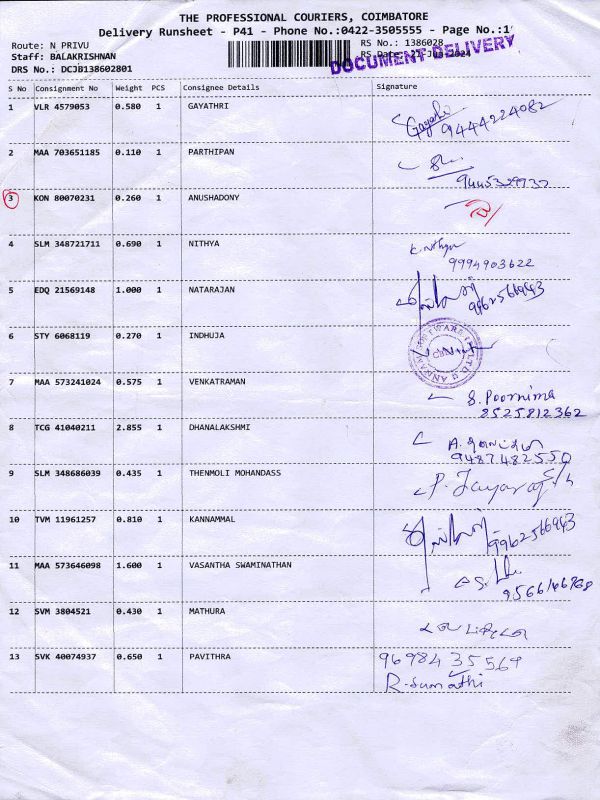 THE PROFESSIONAL COURIERS, COIMBATORE
Delivery Runsheet - P41 - Phone No.:0422-3505555 - Page No.:1
Route: N PRIVU
Staff: BALAKRISHNAN
DRS No.: DCJB138602801
RS No.: 1386028
RS Date: 2024
DOCUMENT DELIVERY
S No Consignment No Weight PCS Consignee Details Signature
1 VLR 4579053 0.580 1 GAYATHRI
9444224082
2 MAA 703651185 0.110 1 PARTHIPAN
3 KON 80070231 0.260 1 ANUSHADONY
4 SLM 348721711 0.690 1 NITHYA
9994903622
5 EDQ 21569148 1.000 1 NATARAJAN
9962566943
6 STY 6068119 0.270 1 INDHUJA
7 MAA 573241024 0.575 1 VENKATRAMAN
S. Poornima
8525812362
8 TCG 41040211 2.855 1 DHANALAKSHMI
9487482550
9 SLM 348686039 0.435 1 THENMOLI MOHANDASS
10 TVM 11961257 0.810 1 KANNAMMAL
9962566943
11 MAA 573646098 1.600 1 VASANTHA SWAMINATHAN
12 SVM 3804521 0.430 1 MATHURA
13 SVK 40074937 0.650 1 PAVITHRA
9698435569
R-Sumathi